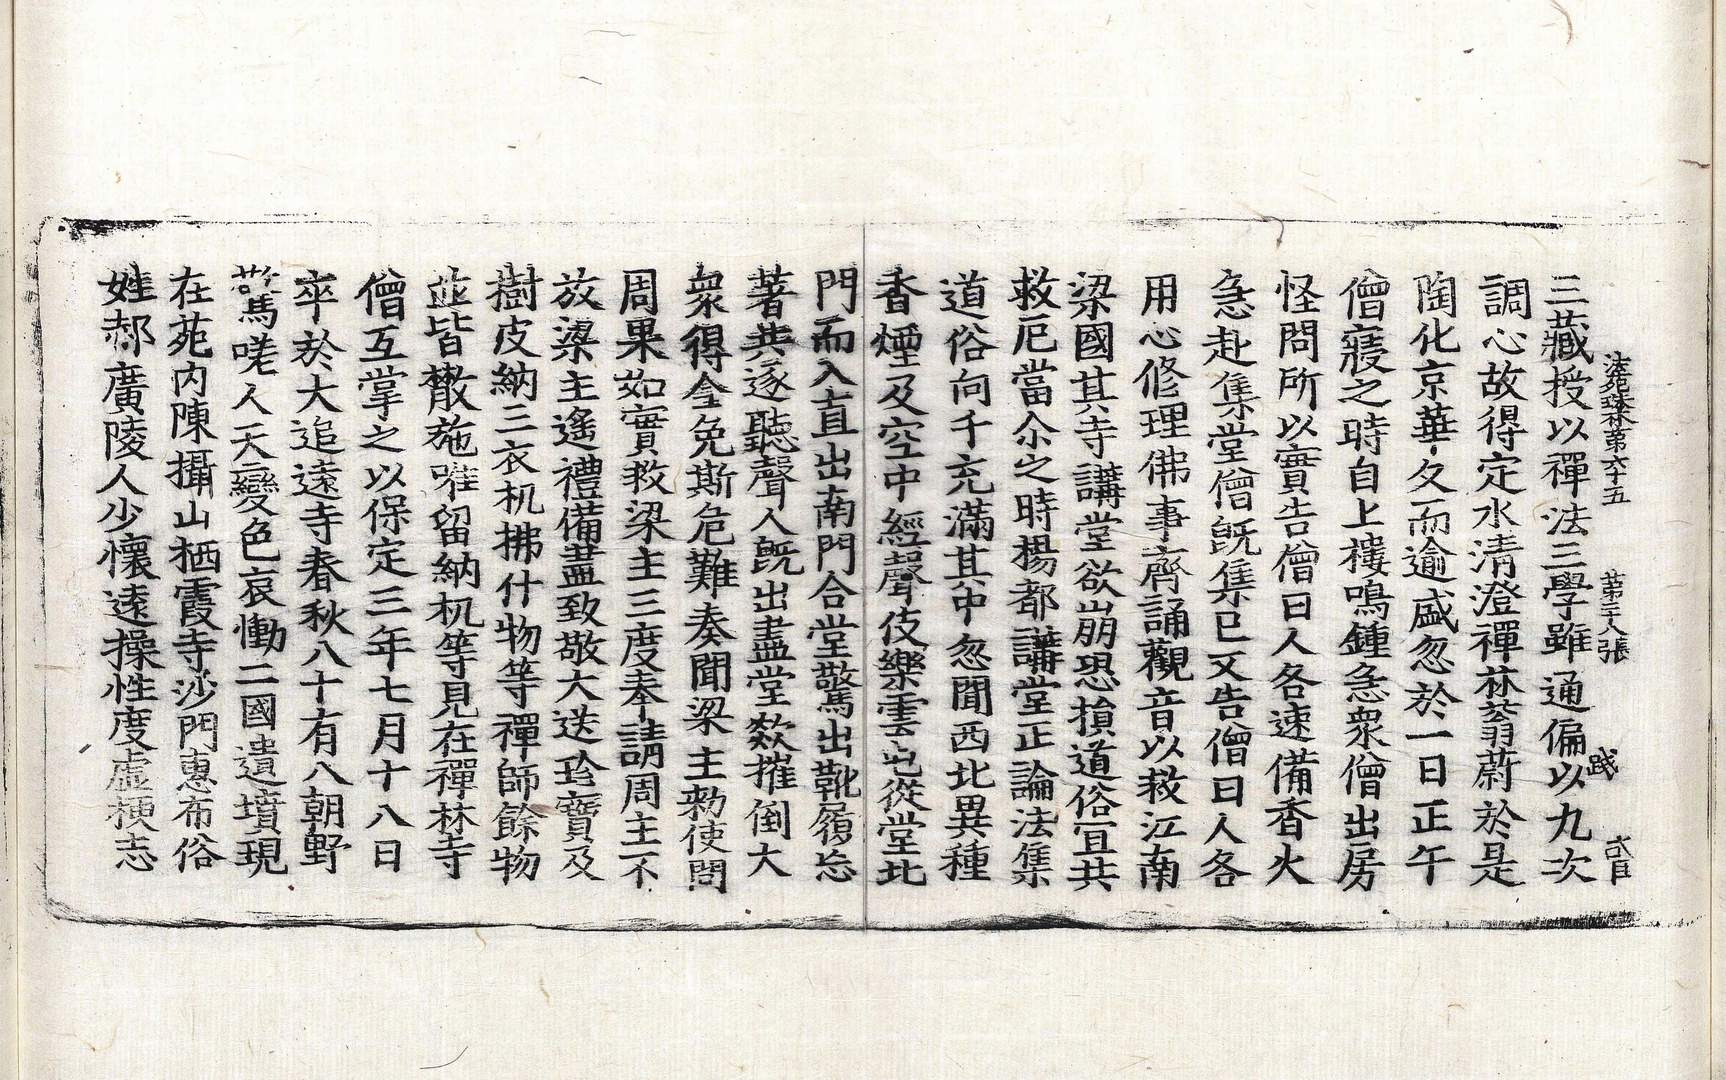 法苑珠林第六十五　第二十八張　踐
三藏授以禪法三學雖通偏以九次
調心故得定水清澄禪林蓊蔚於是
陶化京華久而逾盛忽於一日正午
僧寢之時自上樓鳴鍾急衆僧出房
怪問所以實告僧曰人各速備香火
急赴集堂僧旣集已又告僧曰人各
用心修理佛事齊誦觀音以救江南
梁國其寺講堂欲崩恐損道俗宜共
救厄當尒之時楊都講堂正論法集
道俗向千充滿其中忽聞西北異種
香煙及空中經聲伎樂雲屯從堂北
門而入直出南門合堂驚出靴履忘
著共逐聽聲人旣出盡堂欻摧倒大
衆得全免斯危難奏聞梁主勑使問
周果如實救梁主三度奉請周主不
放梁主遙禮備盡致敬大送珍寶及
樹皮納三衣机拂什物等禪師餘物
並皆散施唯留納机等見在禪林寺
僧互掌之以保定三年七月十八日
卒於大追遠寺春秋八十有八朝野
驚嗟人天變色哀慟二國遺墳現
在苑内陳攝山栖霞寺沙門惠布俗
姓郝廣陵人少懷遠操性度虛梗志